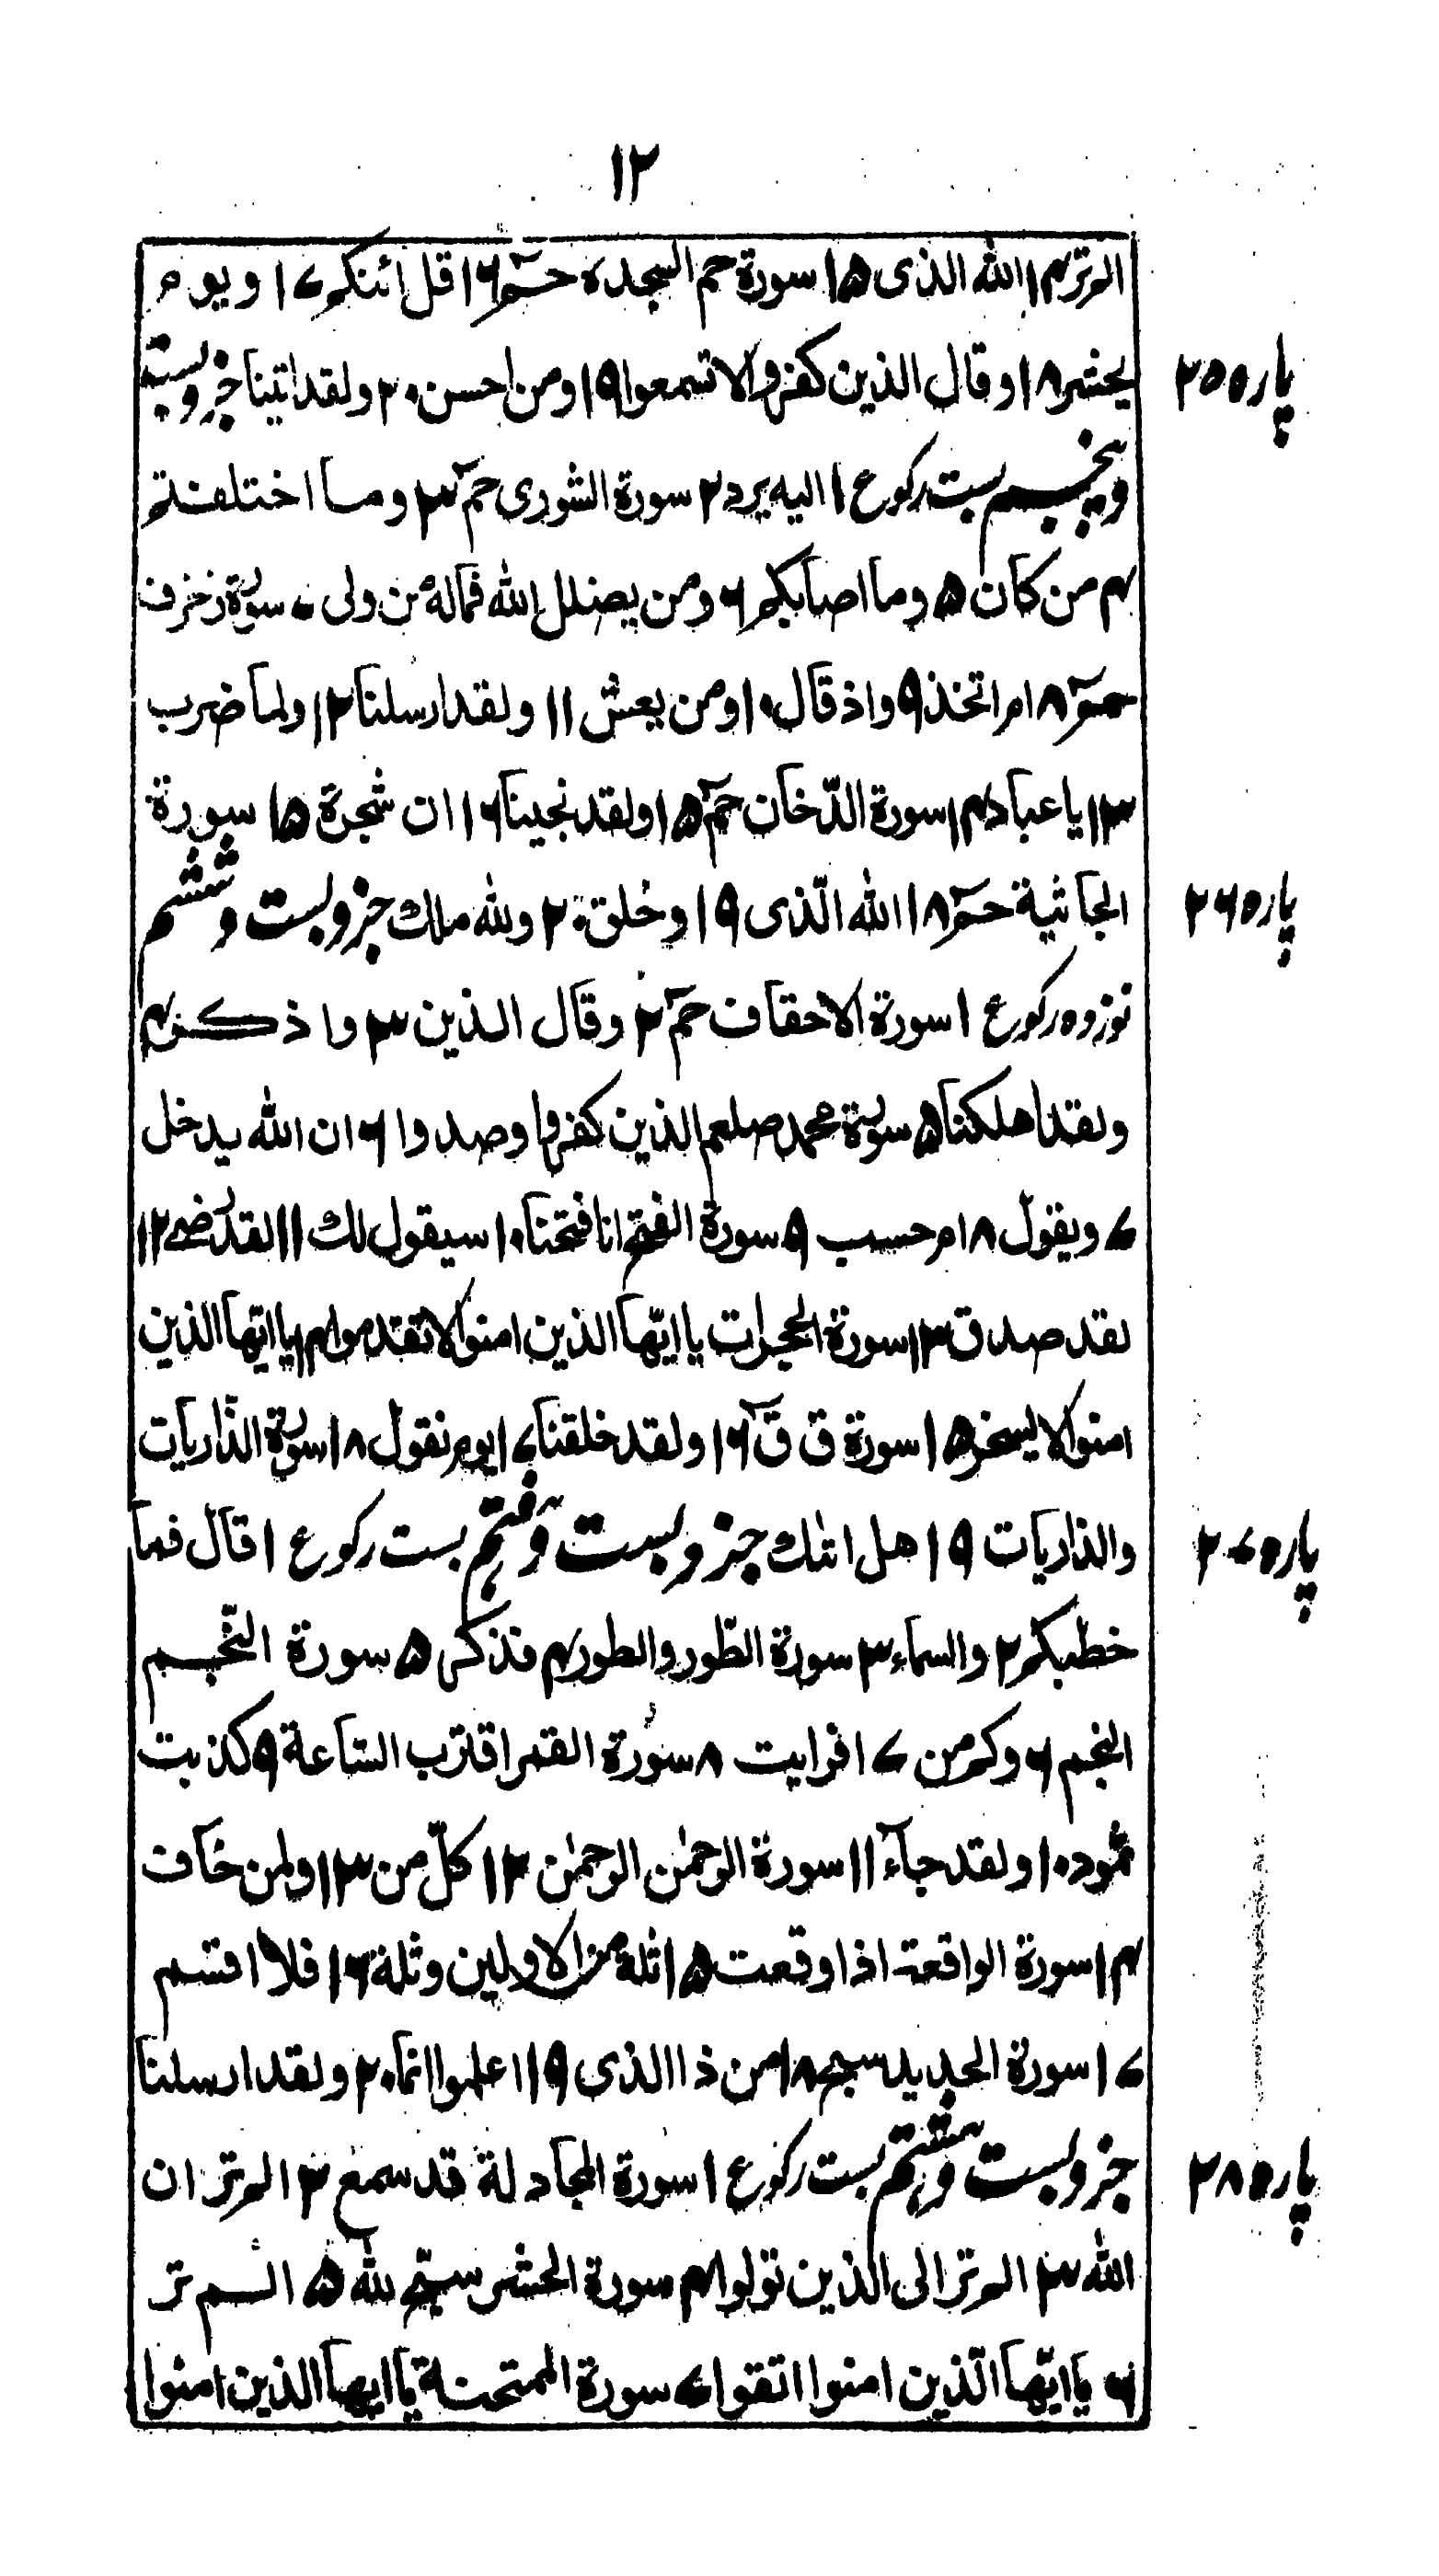 ۱۲
الم تر ۱۴ الله الذی ۱۵ سورة حم السجده حـمٓ ۱۶ قل ائنکم ۱۷ و یوم
یحشر ۱۸ وقال الذین کفروا لا تسمعوا ۱۹ ومن احسن ۲۰ ولقد اتینا جزو بست
پاره ۲۵
و پنجم بست رکوع ۱ الیه یرد ۲ سورة الشوری حمٓ ۳ وما اختلفتم
۴ من کان ۵ وما اصابکم ۶ ومن یضلل الله فماله من ولی ۷ سورة زخرف
حمٓ ۸ ام اتخذ ۹ واذ قال ۱۰ ومن یعش ۱۱ ولقد ارسلنا ۱۲ ولما ضرب
۱۳ یا عباد ۱۴ سورة الدّخان حمٓ ۱۵ ولقد نجینا ۱۶ ان شجرة ۱۵ سورة
الجاثیة حمٓ ۱۸ الله الّذی ۱۹ وخلق ۲۰ ولله ملك جزو بست و ششم
پاره ۲۶
نوزده رکوع ۱ سورة الاحقاف حمٓ ۲ وقال الذین ۳ واذکر ۴
ولقد اهلکنا ۵ سورة محمد صلعم الذین کفروا وصدوا ۶ ان الله یدخل
۷ ویقول ۸ ام حسب ۹ سورة الفتح انا فتحنا ۱۰ سیقول لك ۱۱ لقد رضے ۱۲
لقد صدق ۱۳ سورة الحجرات یا ایّها الذین امنوا لا تقدموا ۱۴ یا ایّها الذین
امنوا لا یسخر ۱۵ سورة ق قٓ ۱۶ ولقد خلقنا ۱۷ یوم نقول ۱۸ سورة الذّاریات
والذاریات ۱۹ هل اتٰك جزو بست و هفتم بست رکوع ۱ قال فما
پاره ۲۷
خطبکم ۲ والسماء ۳ سورة الطّور والطور ۴ فذکر ۵ سورة النّجم
النجم ۶ وکم من ۷ افرایت ۸ سورة القمر اقترب السّاعة ۹ کذبت
ثمود ۱۰ ولقد جآء ۱۱ سورة الرحمٰن الرحمٰن ۱۲ کلّ من ۱۳ ولمن خاف
۱۴ سورة الواقعة اذا وقعت ۱۵ ثلة من الاولین وثلة ۱۶ فلا اقسم
۱۷ سورة الحدید سبح ۱۸ من ذا الذی ۱۹ اعلموا انما ۲۰ ولقد ارسلنا
جزو بست و هشتم بست رکوع ۱ سورة المجادلة قد سمع ۲ الم تر ان
پاره ۲۸
الله ۳ الم تر الی الذین تولوا ۴ سورة الحشر سبّح لله ۵ الـم تر
۶ یا ایّها الّذین امنوا اتقوا ۷ سورة الممتحنة یا ایها الذین امنوا